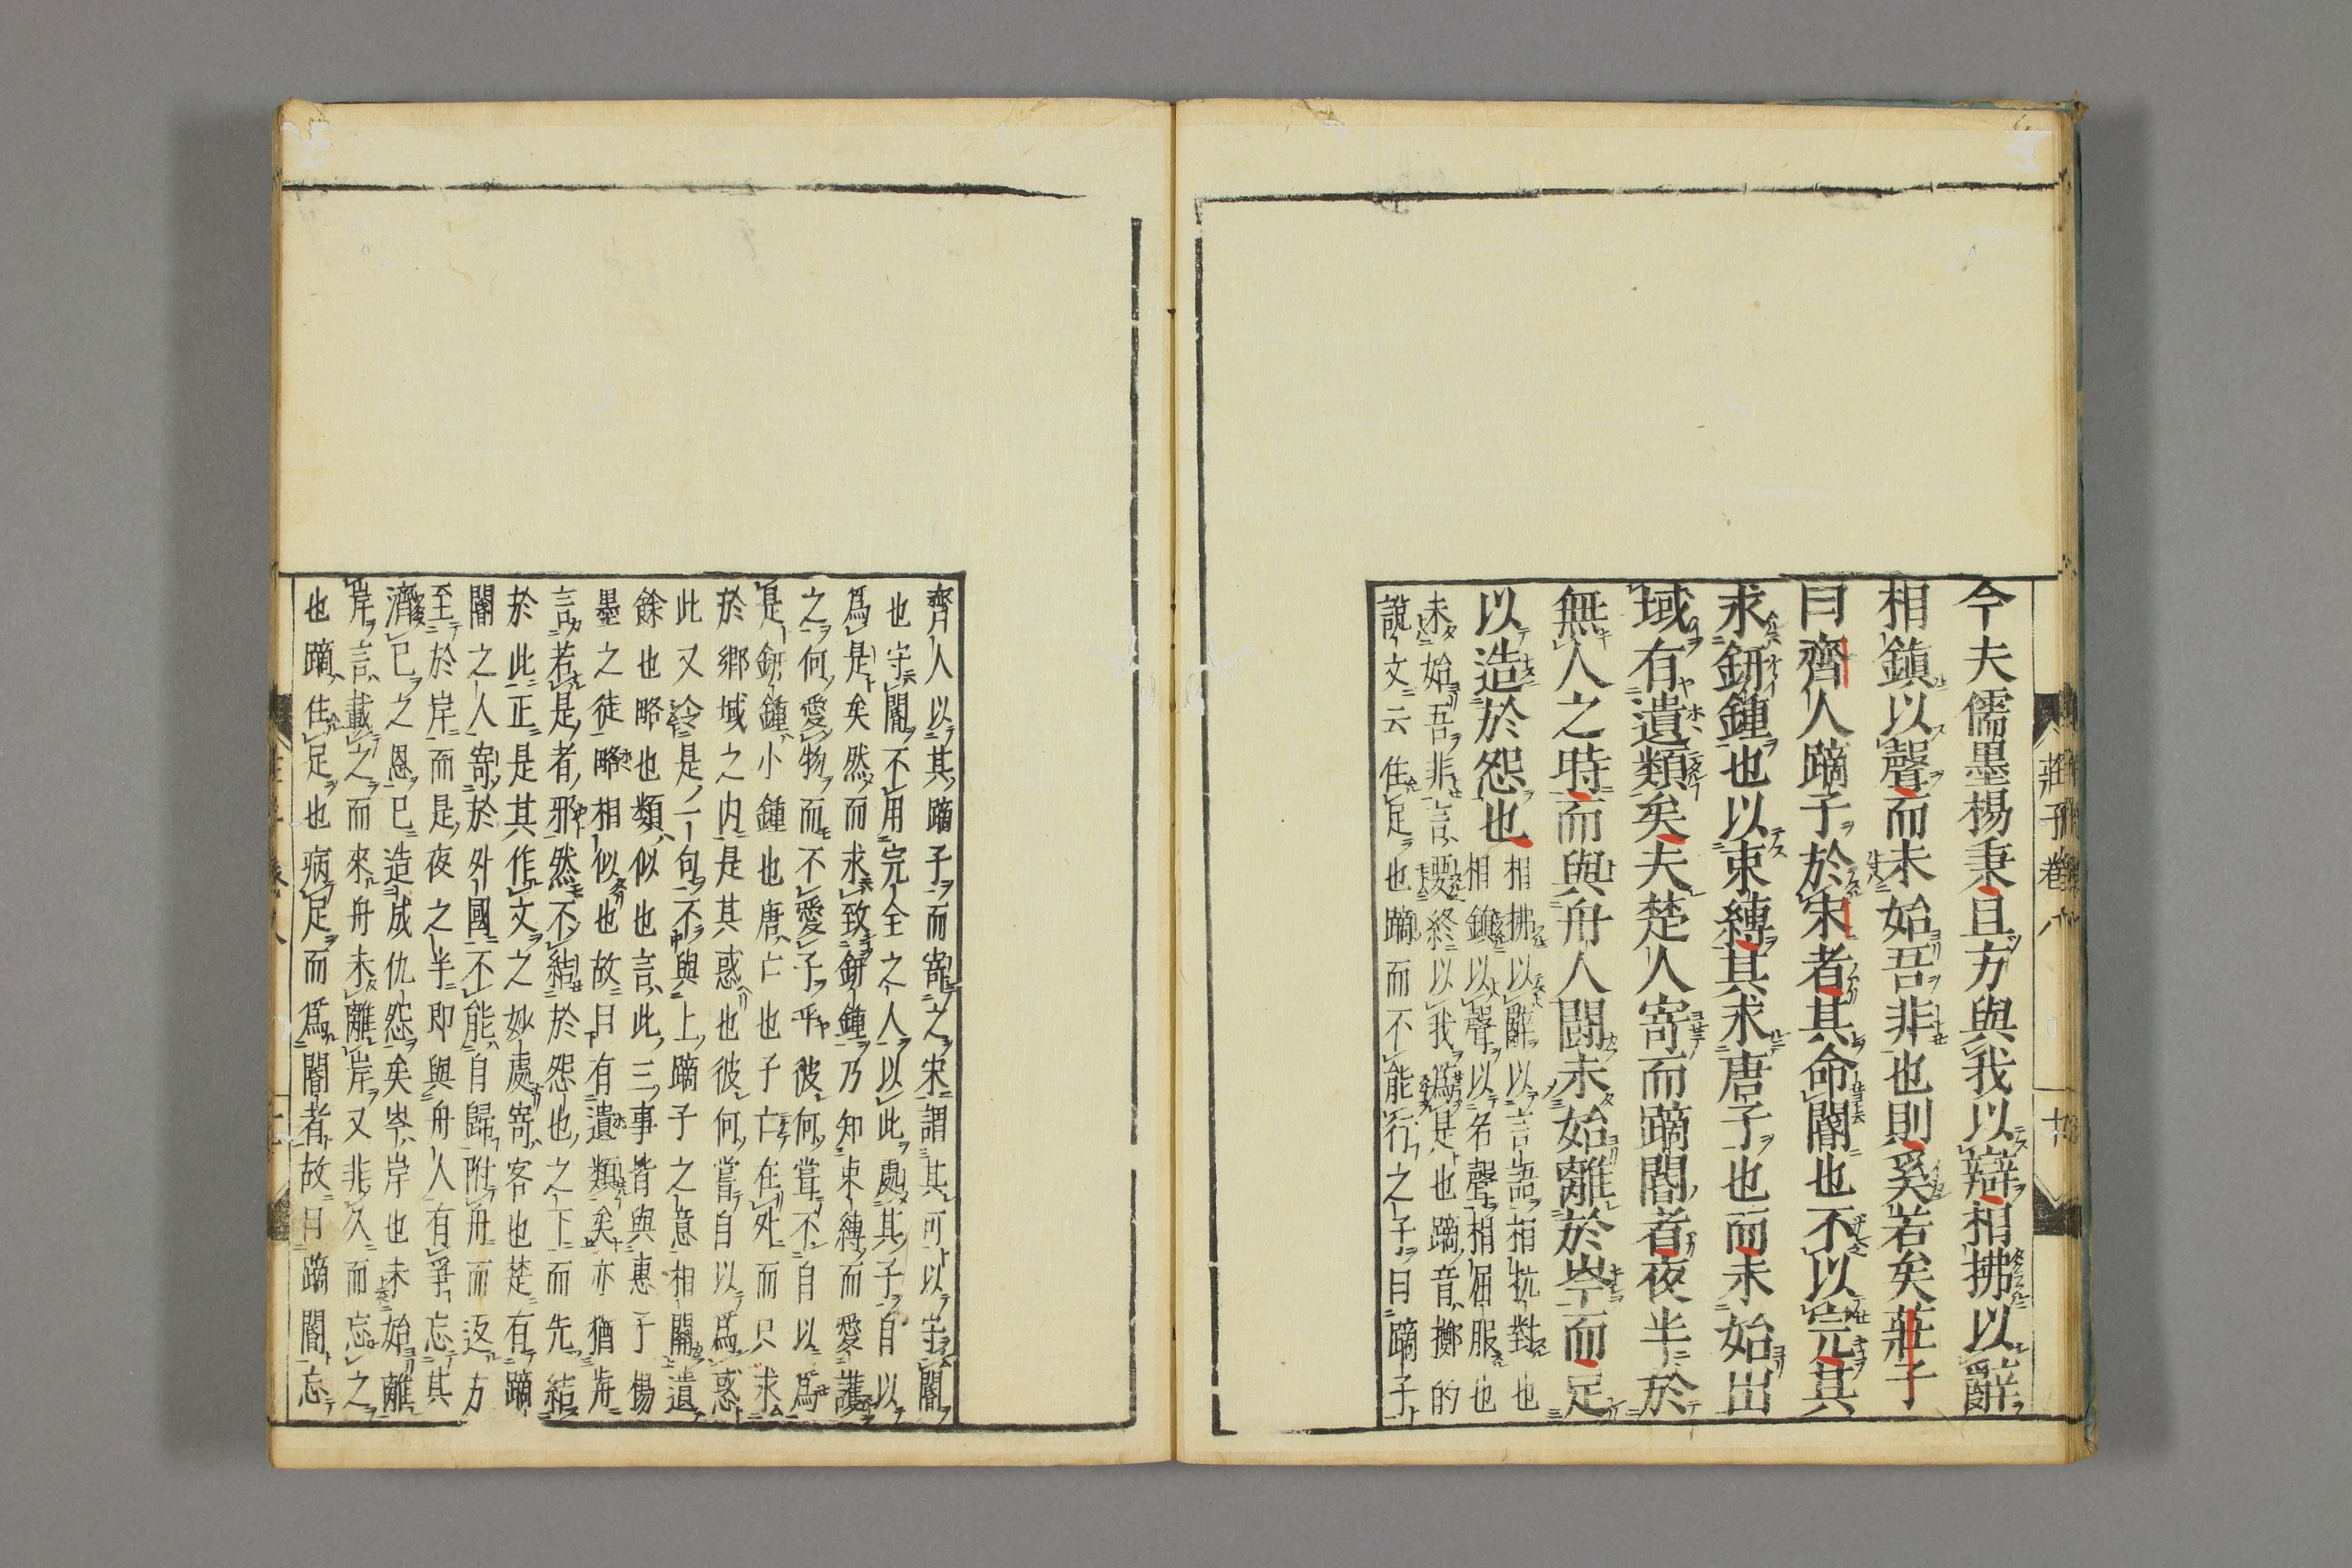 莊子卷八
今夫儒墨楊秉且方與我以辯相拂以辭
相鎮以聲而未始吾非也則奚若矣莊子
曰齊人蹢子於宋者其命閽也不以完其
求鈃鍾也以束縛其求唐子也而未始出
域有遺類矣夫楚人寄而蹢閽者夜半於
無人之時而與舟人鬪未始離於岑而足
以造於怨也
相拂以辭以言語相抗對也
相鎮以聲以名聲相屈服也
未始吾非言要終以我爲是也蹢音擲的
說文云住足也蹢而不能行之子曰蹢子
齊人以其蹢子而寄之宋謂其可以守閽
也守閽不用完全之人以此處其子自以
爲是矣然而求致鈃鍾乃知束縛而愛護
之何愛物而不愛子乎彼何嘗不自以爲
是鈃鍾小鍾也唐亡也子亡在外而只求
於鄉域之内是其惑也彼何嘗自以爲惑
此又令是一句不與上蹢子之意相關遺
餘也略也類似也言此三事皆與惠子楊
墨之徒略相似也故曰有遺類矣亦猶前
言若是者邪然不結於怨也之下而先結
於此正是其作文之妙處寄客也楚有蹢
閽之人寄於外國不能自歸附舟而返方
至於岸而是夜之半即與舟人有爭忘其
濟已之恩已造成仇怨矣岑岸也未始離
岸言載之而來舟未離岸又非久而忘之
也蹢住足也病足而爲閽者故曰蹢閽忘